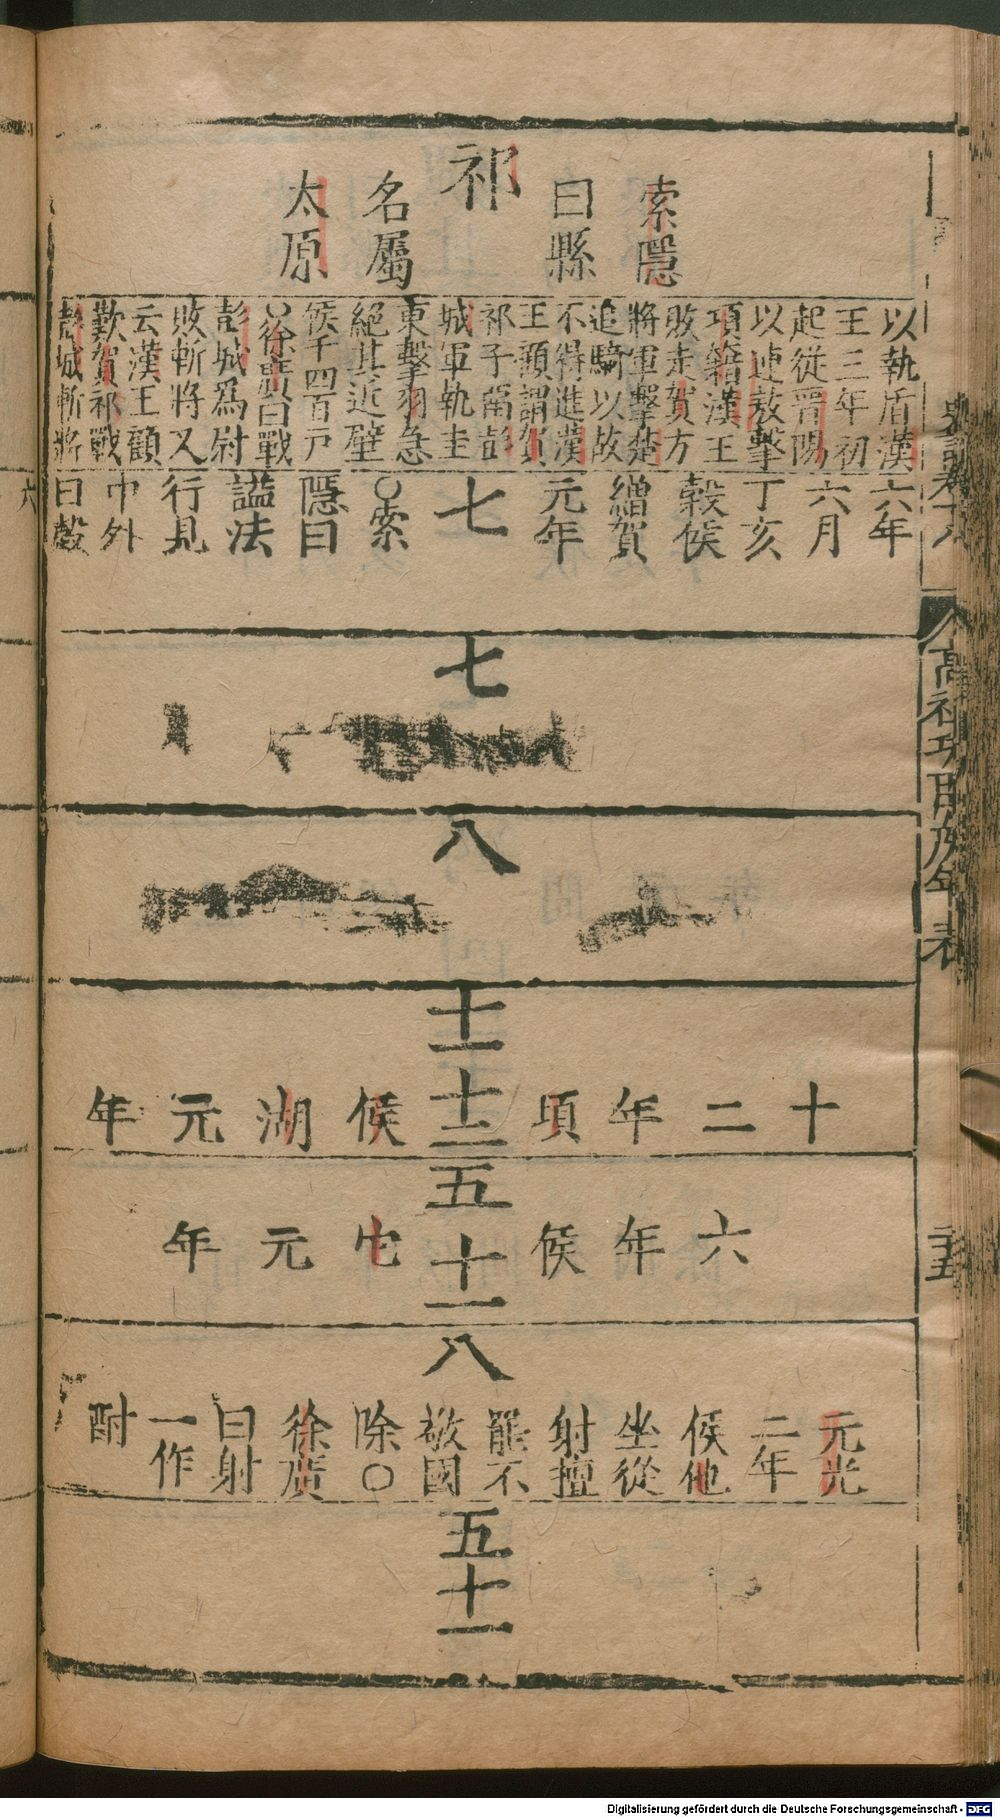 祁
索隱
曰縣
名屬
太原
以執盾漢
王三年初
起從晉陽
以連敖擊
項籍漢王
敗走賀方
將軍擊楚
追騎以故
不得進漢
王顧謂賀
祁子畱彭
城軍執圭
東擊羽急
絕其近壁
侯千四百戸
○徐廣曰戰
彭城爲尉
敗斬將又
云漢王顧
歎賀祁戰
彭城斬將
六年
六月
丁亥
穀侯
繒賀
元年
七
○索
隱曰
謚法
行見
中外
曰穀
七
八
十一
十二年頃
十二
侯湖元年
五
六年侯
十一
它元年
八
元光
二年
侯他
坐從
射擅
罷不
敬國
除○
徐廣
曰射
一作
酎
五十一
高祖功臣侯年表
Digitalisierung gefördert durch die Deutsche Forschungsgemeinschaft - DFG